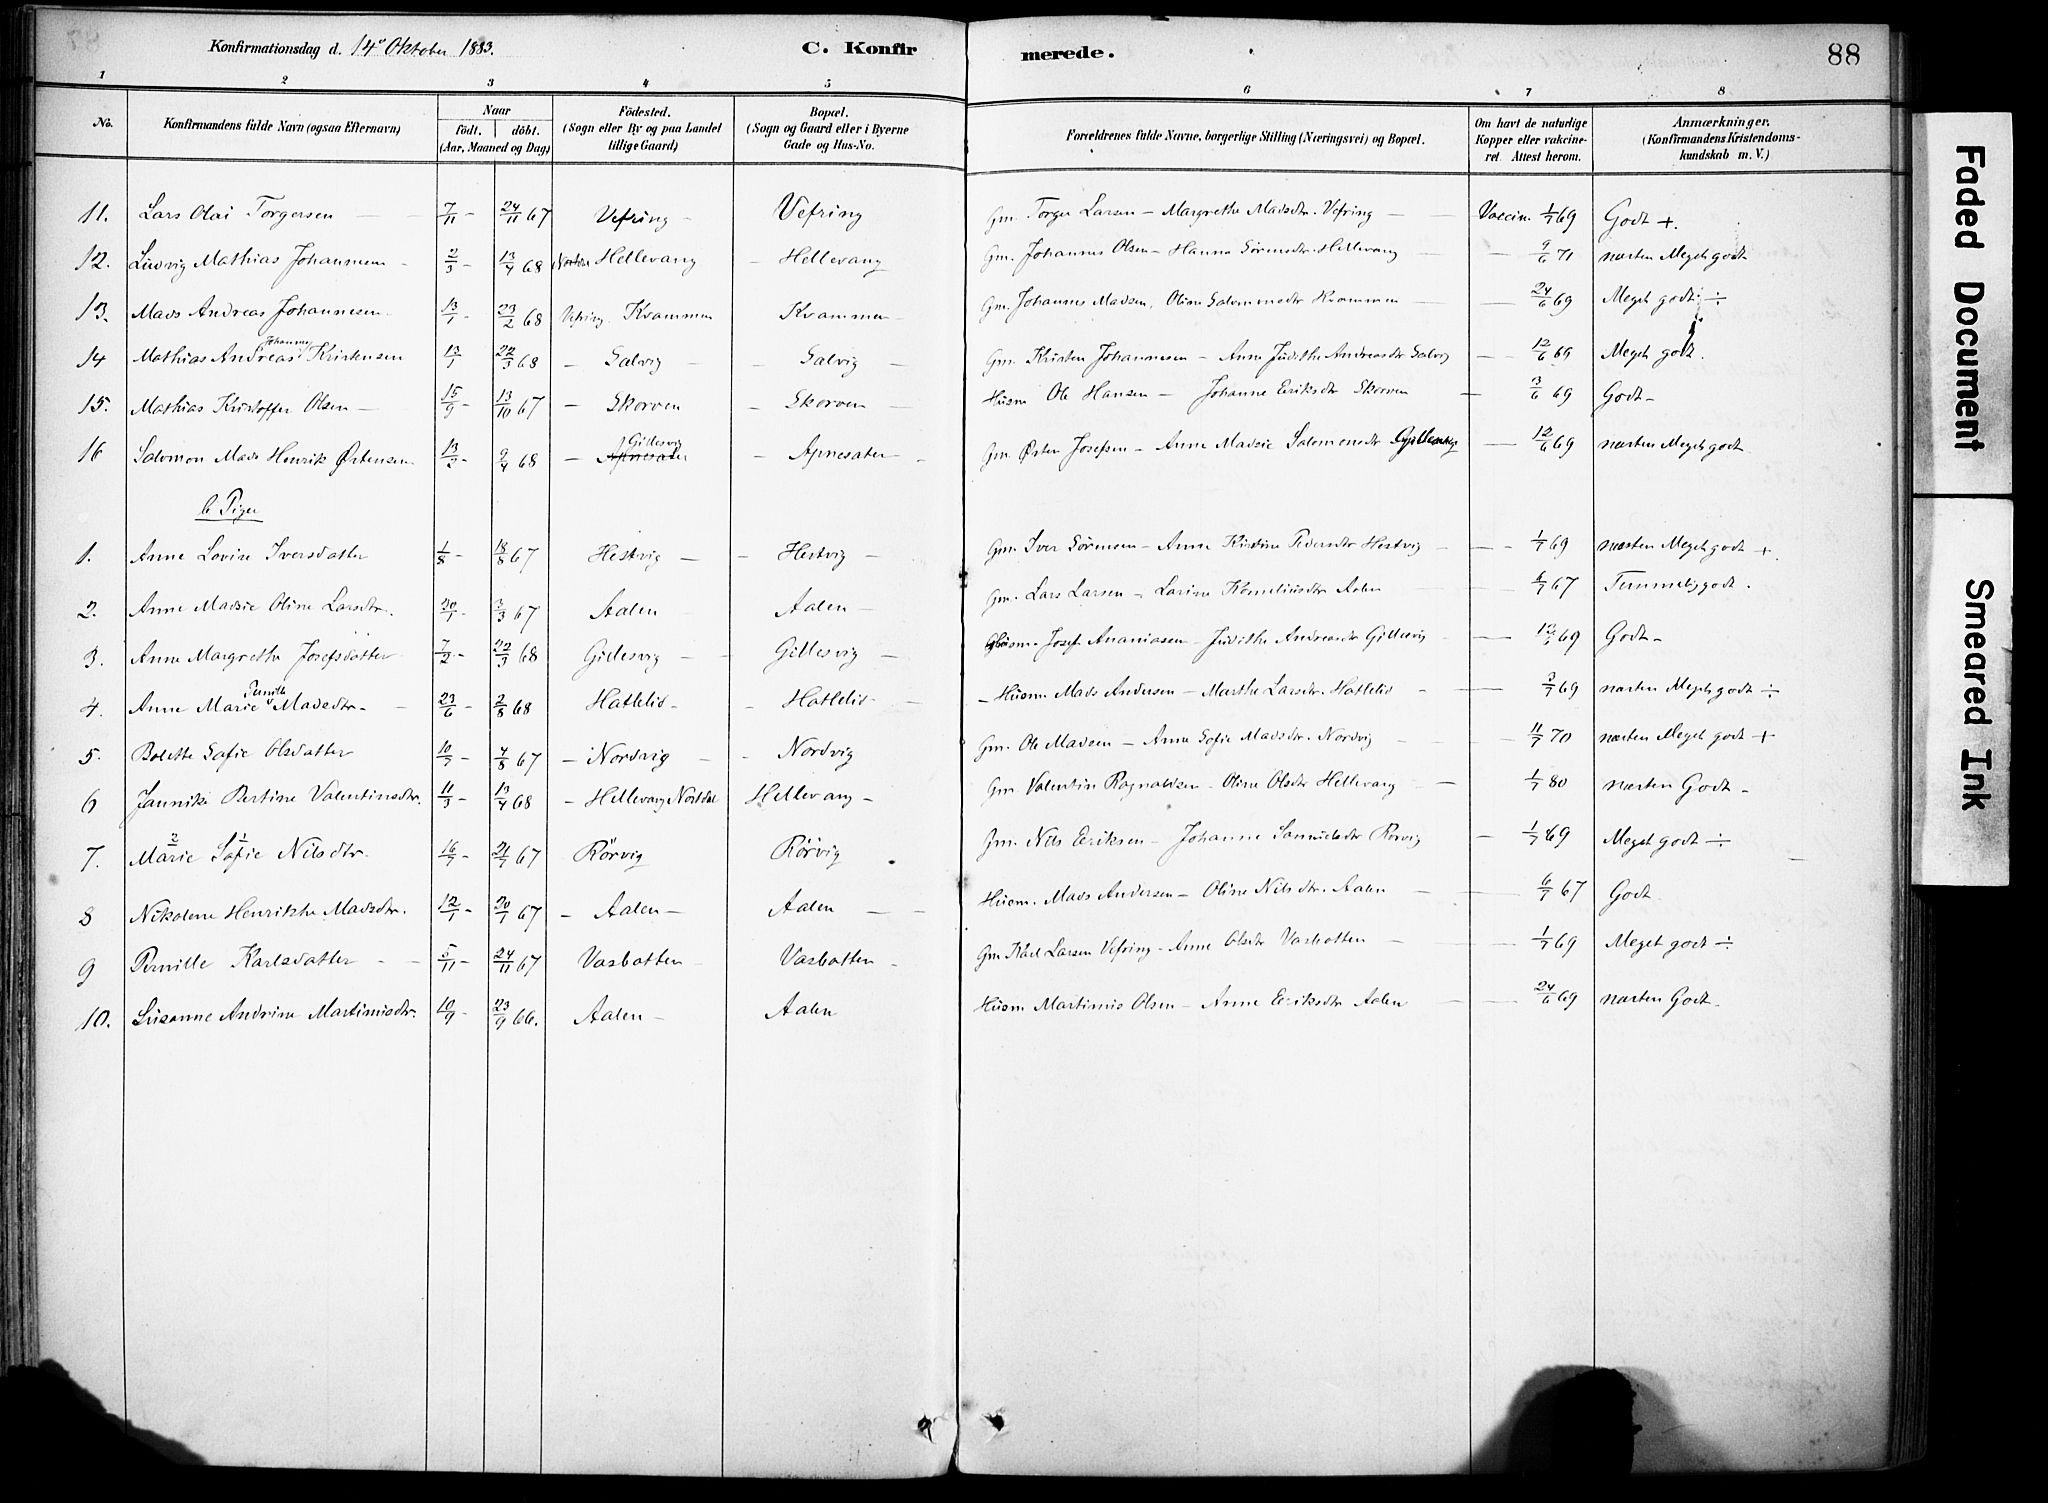 Konfirmationsdag d. 14de Oktober 1883. C. Konfirmerede. 88
1 2 3 4 5 6 7 8
No. Konfirmandens fulde Navn (ogsaa Efternavn) Naar födt. döbt. (Aar, Maaned og Dag) Födested. (Sogn eller By og paa Landet tillige Gaard) Bopæl. (Sogn og Gaard eller i Byerne Gade og Hus-No. Forældrenes fulde Navne, borgerlige Stilling (Næringsvei) og Bopæl. Om havt de naturlige Kopper eller vakcineret. Attest herom. Anmærkninger. (Konfirmandens Kristendomskundskab m. V.)
11. Lars Olai Torgersen 7/11 - 24/11 67 Vefring Vefring Gm. Torger Larsen - Margrethe Madsdtr. Vefring Vaccin. 1/7 69 Godt +.
12. Ludvig Mathias Johannesen 2/3 - 13/4 68 Hellevang Hellevang Gm. Johannes Olsen - Hanna Sørensdtr. Hellevang 9/6 71 næsten Meget godt
13. Mads Andreas Johannesen 13/1 23/2 68 Vefring Kvammen Kvammen Gm. Johannes Madsen, Oline Salomonsdtr Kvammen 24/6 69 Meget godt ÷
14 Mathias Andreas Johannes Kristensen 13/1 22/3 68 Salvig Salvig Gm. Kristen Johannesen - Anne Judithe Andreasdtr Salvig 12/6 69 Meget godt.
15. Mathias Kristoffer Olsen 15/9 - 13/10 67 Skorven Skorven Husm Ole Hansen - Johanne Eriksdtr Skorven 3/6 69 Godt -
16 Salomon Mads Henrik Østensen 13/2 - 9/4 68 Gillesvig Apnesæter Apnesæter Gm. Østen Josefsen - Anne Madsie Salomonsdtr 12/6 69 næsten Meget godt
b Piger
1. Anne Lovise Iversdatter 1/8 - 18/8 67 Hestvig Hestvig Gm. Iver Sørensen - Anne Kirstine Pedersdtr Hestvig 1/7 69 næsten Meget godt +.
2. Anne Madsie Oline Larsdtr. 20/1 3/3 67 Aalen Aalen Gm. Lars Larsen - Larine Korneliusdtr Aalen 6/7 67 Temmelig godt.
3. Anne Margrethe Josefsdatter 7/2 - 22/3 68 Gillesvig Gillesvig Josef Ananiasen - Judithe Andreasdtr Gillesvig 69 Godt -
4. Anne Marie Pernille Madsdtr. 23/6 - 2/8 68 Hatlelid Hatlelid Husm Mads Andersen - Marthe Larsdtr. Hatlelid 69 næsten Meget godt ÷
5. Bolette Sofie Olsdatter 10/7 - 4/8 67 Nordvig Nordvig Gm. Ole Madsen - Anne Sofie Madsdtr. Nordvig 11/7 70 næsten Meget godt +
6 Jannike Bertine Valentinsdtr. 11/3 - 13/4 68 Hellevang Hellevang Gm Valentin Ragnaldsen - Oline Olsdtr Hellevang 1/7 80 næsten Godt -
7. Marie Sofie Nilsdtr. 16/7 - 21/7 67 Rörvig Rörvig Gm. Nils Eriksen - Johanne Samuelsdtr Rørvig 1/7 69 Meget godt ÷
8 Nikolene Henrikke Madsdtr. 12/1 - 20/1 67 Aalen Aalen Husm. Mads Andersen - Oline Nilsdtr. Aalen 6/7 67 Godt
9 Pernille Karlsdatter 5/11 - 24/11 67 Vasbotten Vasbotten Gm Karl Larsen Vefring - Anne Olsdtr Vasbotten 1/7 69 Meget godt ÷
10. Susanne Andrine Martinusdtr. 10/9 - 23/9 66. Aalen Aalen Husm Martinus Olsen - Anne Eriksdtr Aalen 24/6 69 næsten Godt.
Faded Document
Smeared Ink